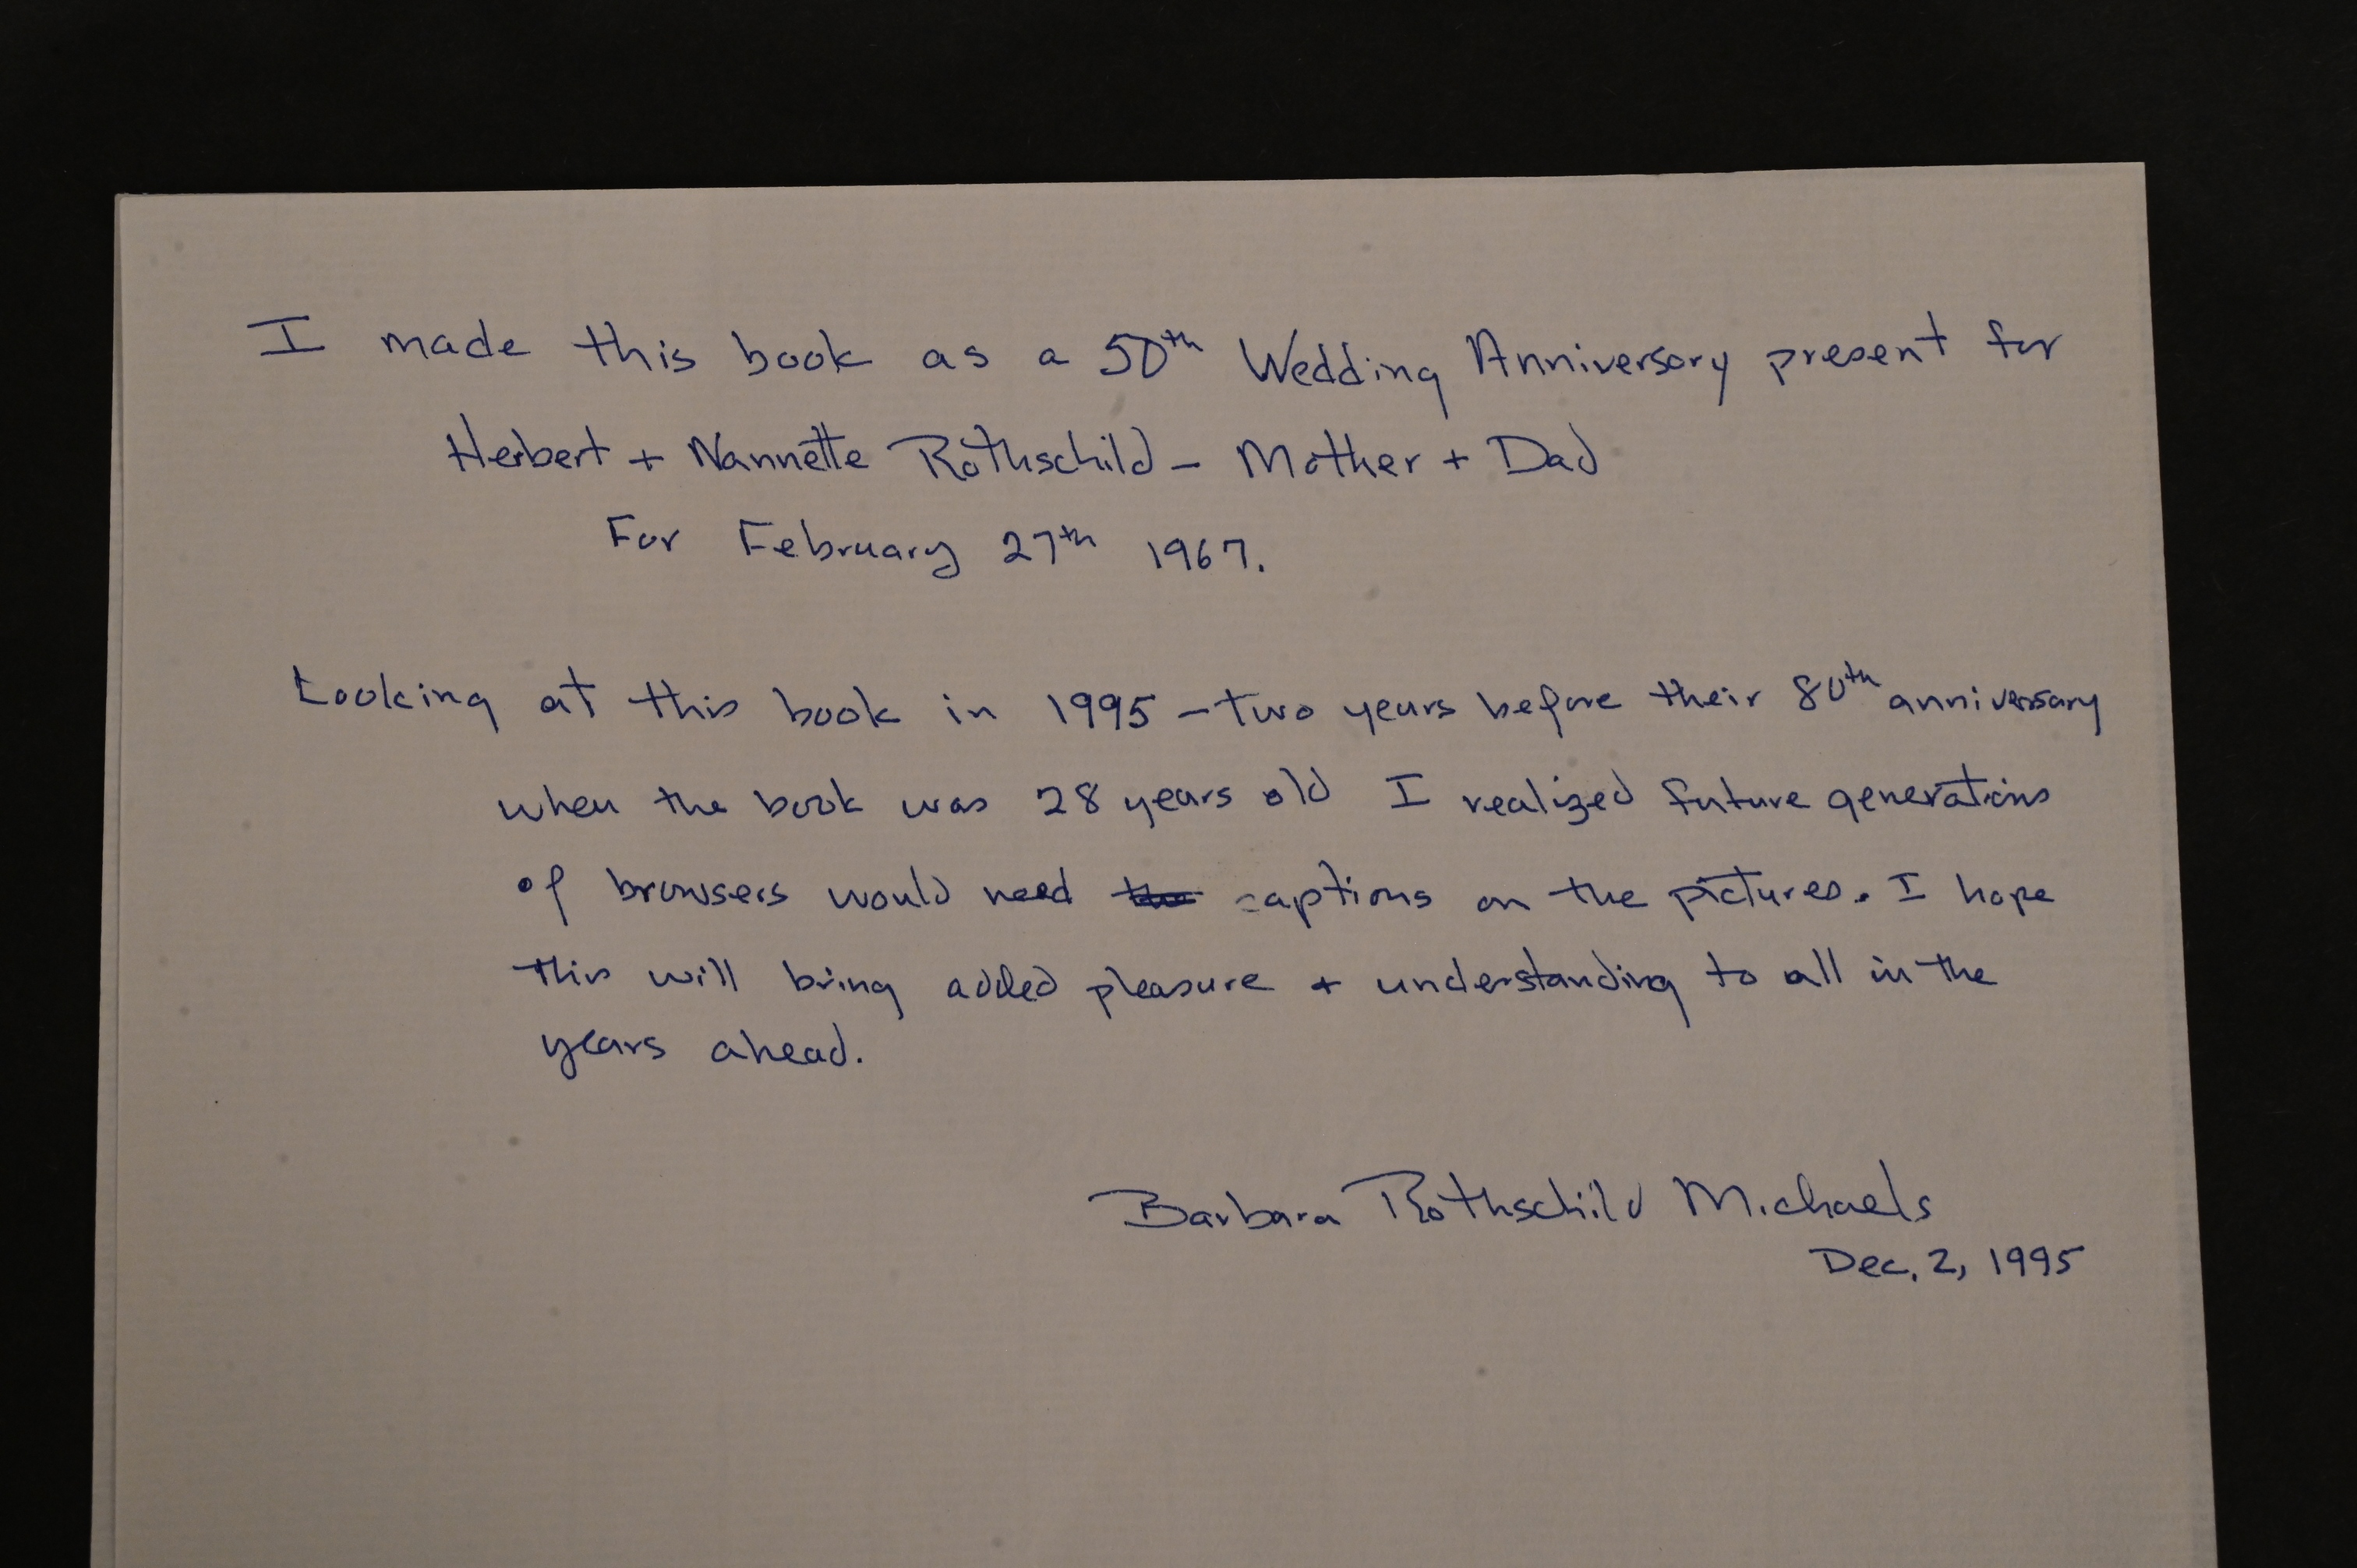 I made this book as a 50th Wedding Anniversary present for
Herbert + Nannette Rothschild – Mother + Dad
For February 27th 1967.
Looking at this book in 1995 – two years before their 80th anniversary
when the book was 28 years old I realized future generations
of browsers would need captions on the pictures. I hope
this will bring added pleasure + understanding to all in the
years ahead.
Barbara Rothschild Michaels
Dec. 2, 1995